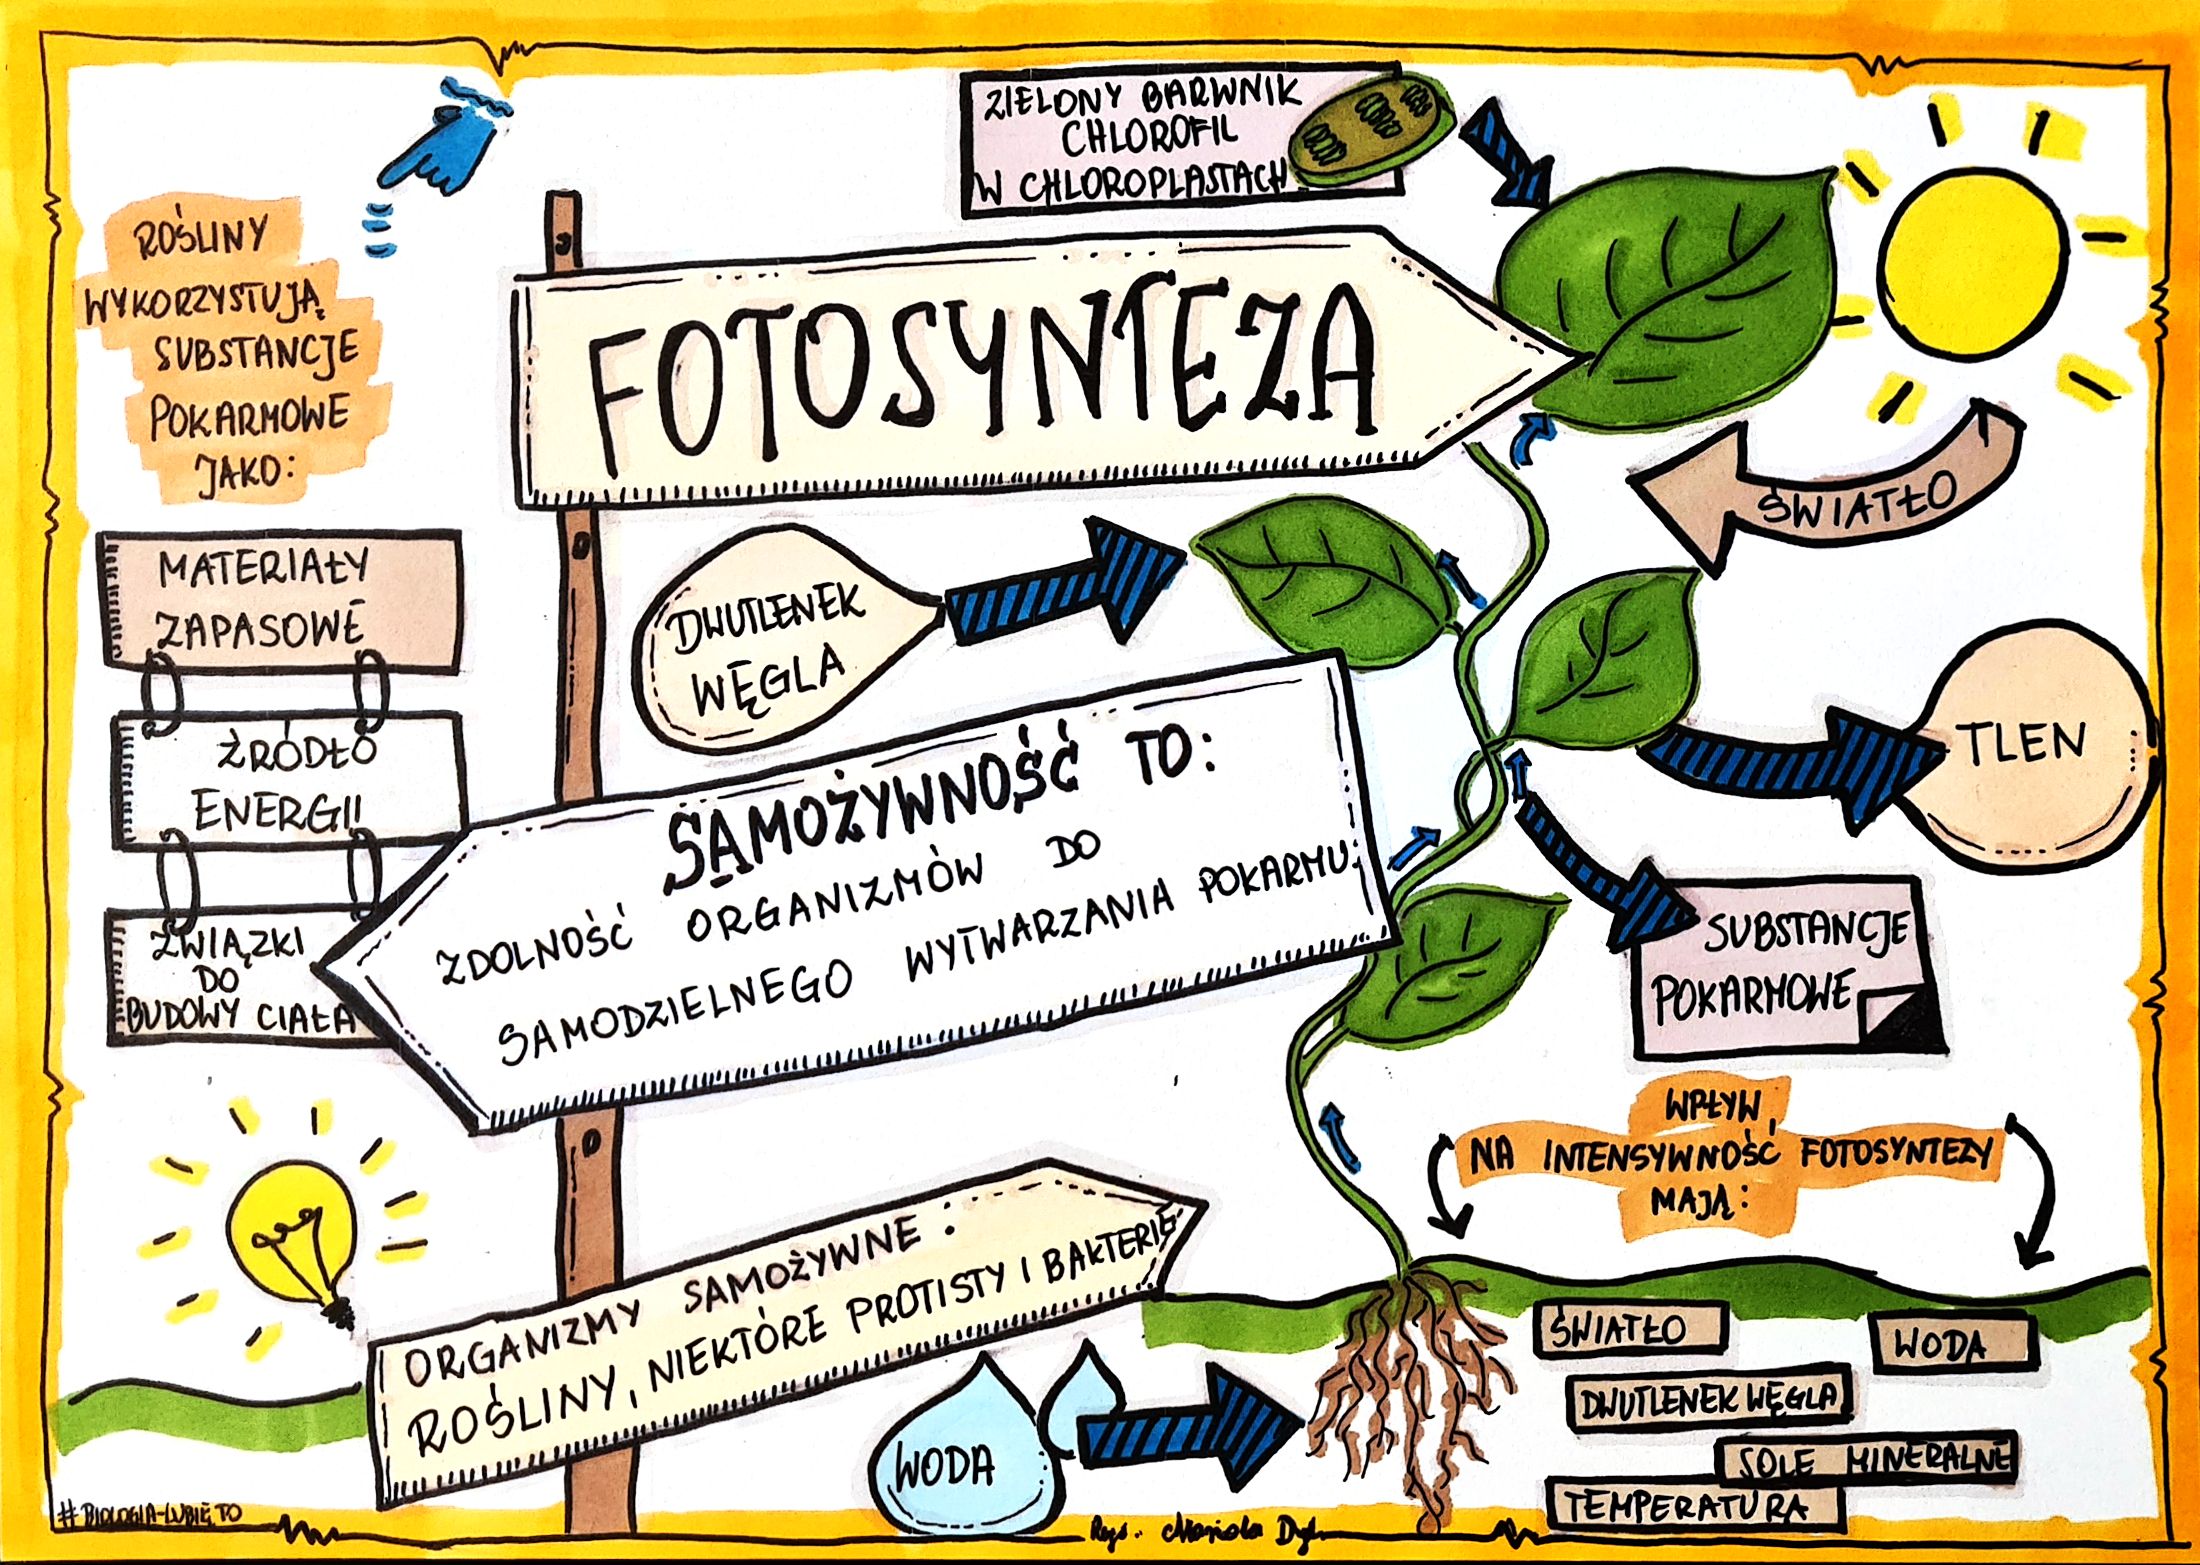 ZIELONY BARWNIK
CHLOROFIL
W CHLOROPLASTACH
ROŚLINY
WYKORZYSTUJĄ
SUBSTANCJE
POKARMOWE
JAKO:
FOTOSYNTEZA
ŚWIATŁO
MATERIAŁY
ZAPASOWE
ŹRÓDŁO
ENERGII
ZWIĄZKI
DO
BUDOWY CIAŁA
DWUTLENEK
WĘGLA
TLEN
SAMOŻYWNOŚĆ TO:
ZDOLNOŚĆ ORGANIZMÓW DO
SAMODZIELNEGO WYTWARZANIA POKARMU.
SUBSTANCJE
POKARMOWE
WPŁYW
NA INTENSYWNOŚĆ FOTOSYNTEZY
MAJĄ:
ORGANIZMY SAMOŻYWNE:
ROŚLINY, NIEKTÓRE PROTISTY I BAKTERIE
WODA
ŚWIATŁO
WODA
DWUTLENEK WĘGLA
SOLE MINERALNE
TEMPERATURA
#BIOLOGIA-LUBIĘTO
Mariola